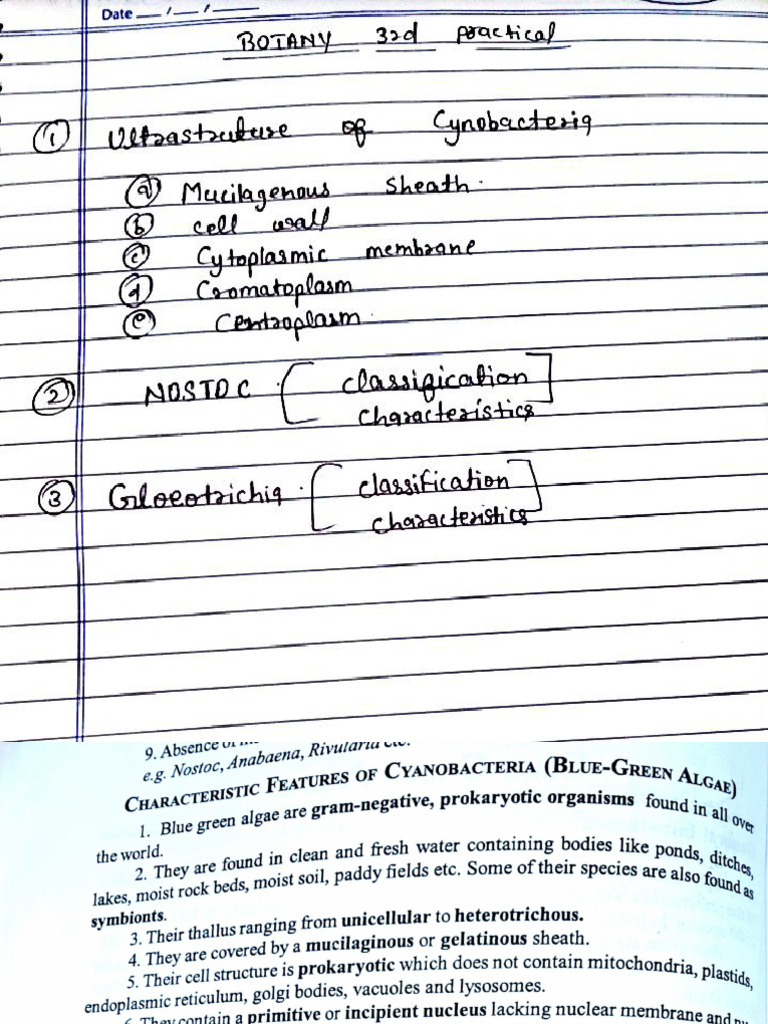 Date __/__/__
BOTANY 3rd practical
① Ultrastruture of Cynobacteria
ⓐ Mucilagenous Sheath.
ⓑ cell wall
ⓒ Cytoplasmic membrane
ⓓ Cromatoplasm
ⓔ Centroplasm.
② NOSTOC [ classification ]
characteristics
③ Gloeotrichia. [ classification ]
characteristics
9. Absence
e.g. Nostoc, Anabaena, Rivularia etc.
CHARACTERISTIC FEATURES OF CYANOBACTERIA (BLUE-GREEN ALGAE)
1. Blue green algae are gram-negative, prokaryotic organisms found in all over
the world.
2. They are found in clean and fresh water containing bodies like ponds, ditches,
lakes, moist rock beds, moist soil, paddy fields etc. Some of their species are also found as
symbionts.
3. Their thallus ranging from unicellular to heterotrichous.
4. They are covered by a mucilaginous or gelatinous sheath.
5. Their cell structure is prokaryotic which does not contain mitochondria, plastids,
endoplasmic reticulum, golgi bodies, vacuoles and lysosomes.
6. They contain a primitive or incipient nucleus lacking nuclear membrane and